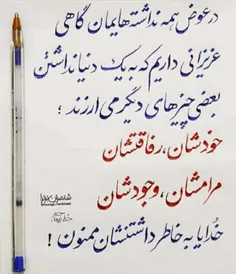 در عوض همه نداشته‌هایمان گاهی
عزیزانی داریم که به یک دنیا نداشتن
بعضی چیزهای دیگر می‌ارزند؛
خودشان، رفاقتشان
مرامشان، وجودشان
خدایا به خاطر داشتنشان ممنون!